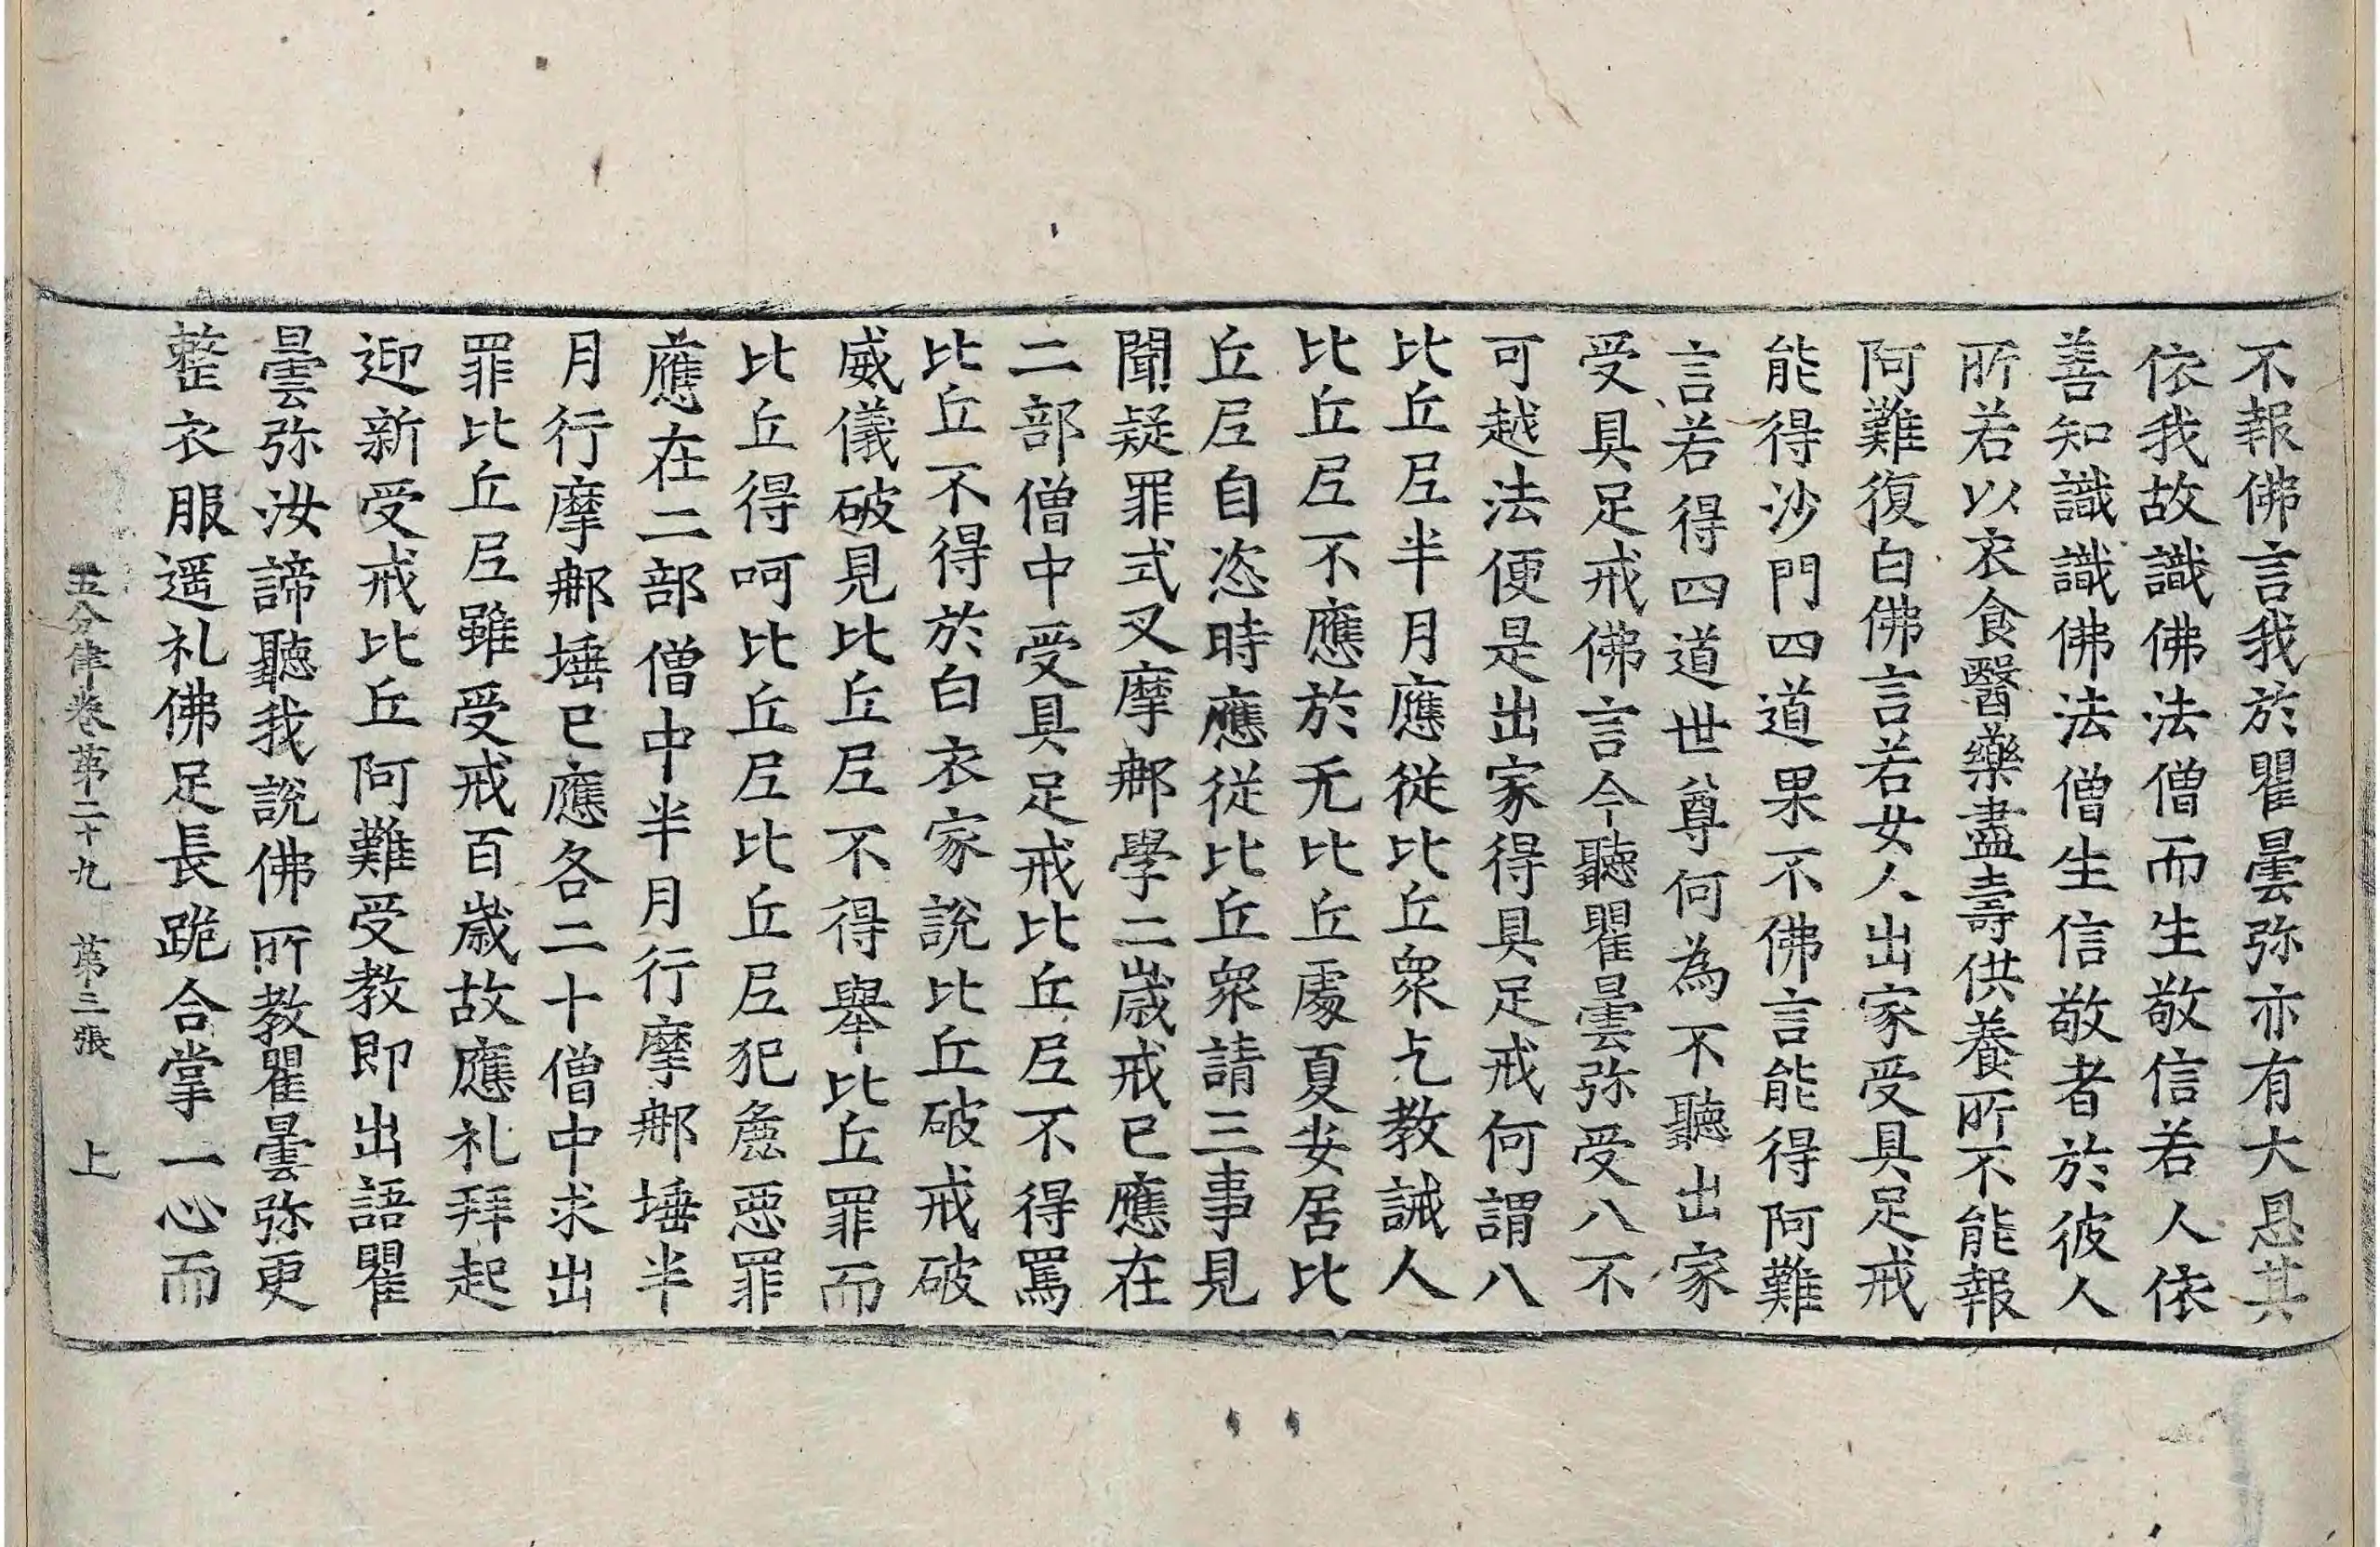 不報佛言我於瞿曇弥亦有大恩其
依我故識佛法僧而生敬信若人依
善知識識佛法僧生信敬者於彼人
所若以衣食醫藥盡壽供養所不能報
阿難復白佛言若女人出家受具足戒
能得沙門四道果不佛言能得阿難
言若得四道世尊何為不聽出家
受具足戒佛言今聽瞿曇弥受八不
可越法便是出家得具足戒何謂八
比丘尼半月應從比丘衆乞教誡人
比丘尼不應於无比丘處夏安居比
丘尼自恣時應從比丘衆請三事見
聞疑罪式叉摩郍學二歲戒已應在
二部僧中受具足戒比丘尼不得罵
比丘不得於白衣家說比丘破戒破
威儀破見比丘尼不得舉比丘罪而
比丘得呵比丘尼比丘尼犯麁惡罪
應在二部僧中半月行摩郍埵半
月行摩郍埵已應各二十僧中求出
罪比丘尼雖受戒百歲故應礼拜起
迎新受戒比丘阿難受教即出語瞿
曇弥汝諦聽我說佛所教瞿曇弥更
整衣服遥礼佛足長跪合掌一心而
五分律卷第二十九 第三張 上